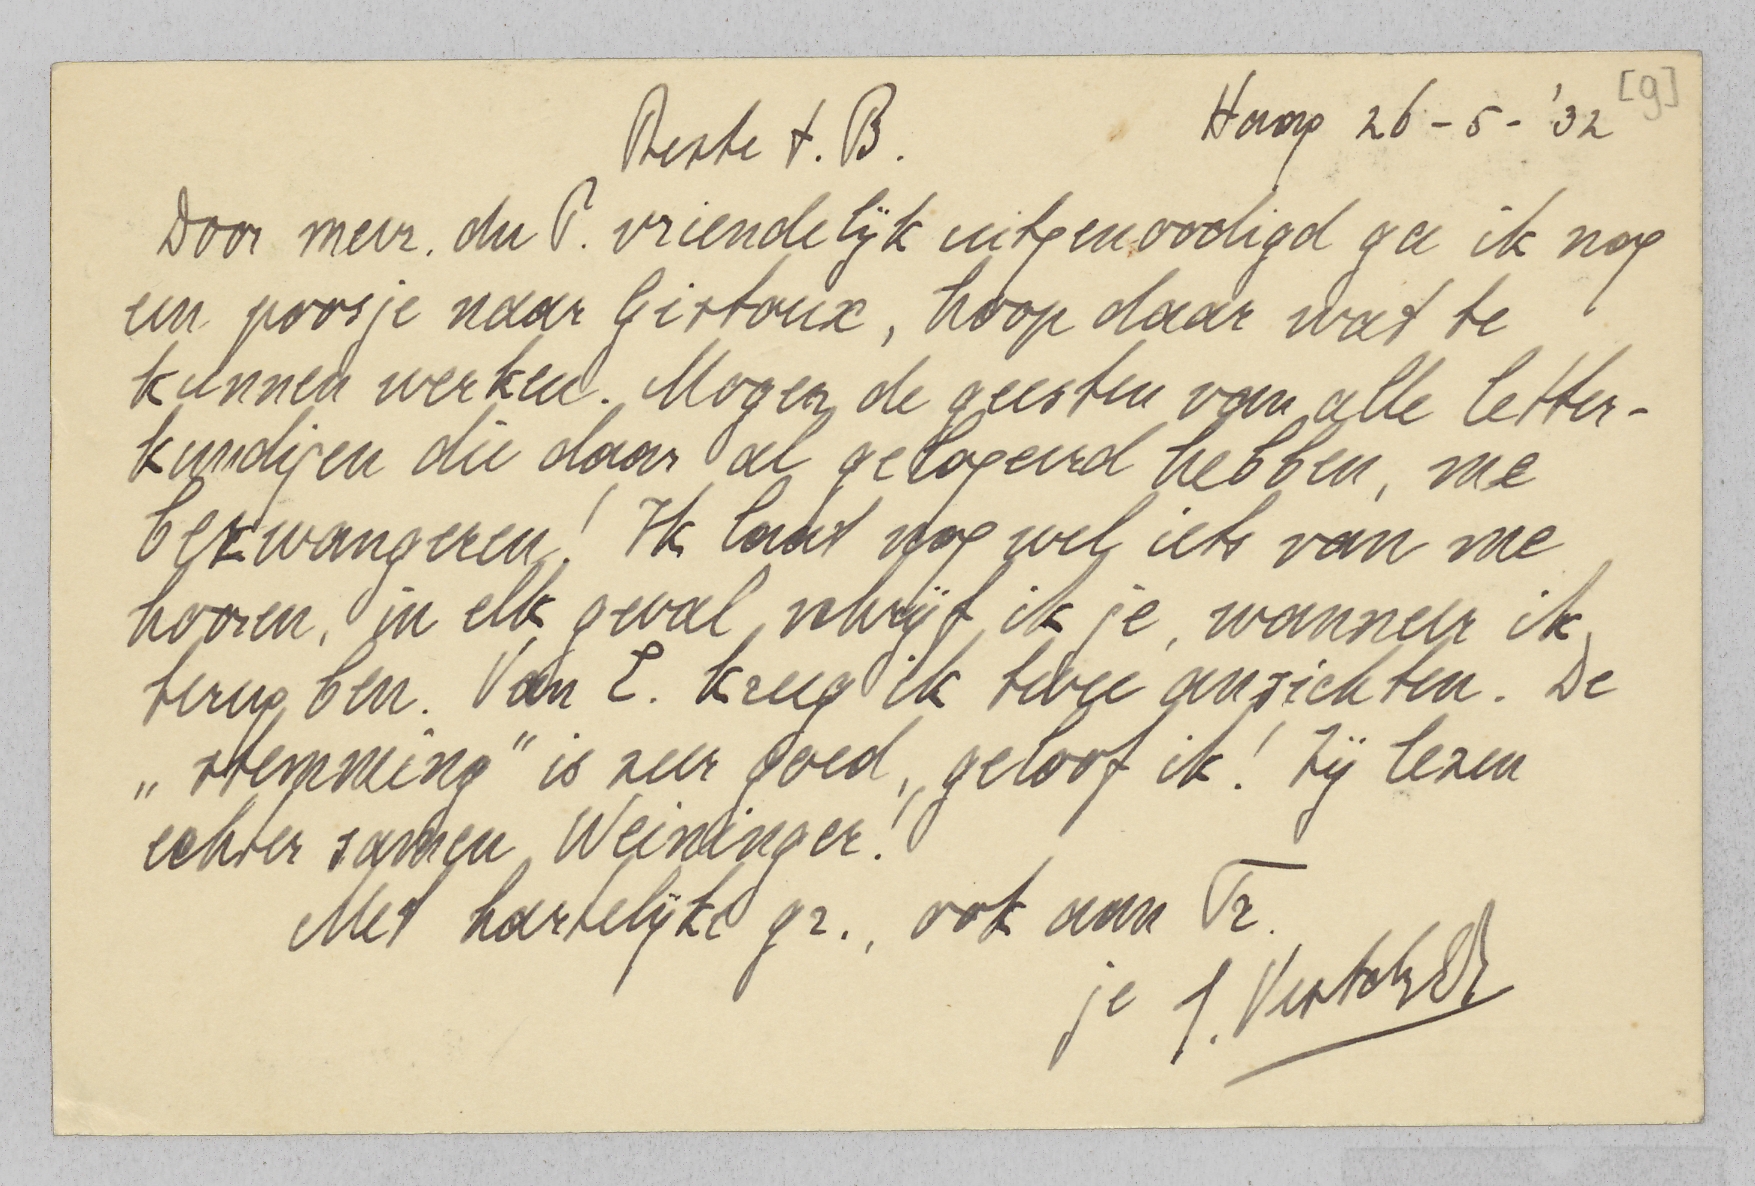 [9]
Haag 26-5-'32
Beste t. B.
Door mevr. du P. vriendelijk uitgenoodigd ga ik nog
een poosje naar Gistoux, hoop daar wat te
kunnen werken. Mogen de geesten van alle letter-
kundigen die daar al gelogeerd hebben, me
bezwangeren! Ik laat nog wel iets van me
hooren, in elk geval schrijf ik je, wanneer ik
terug ben. Van E. kreeg ik twee ansichten. De
„stemming" is zeer goed, geloof ik! Zij lezen
echter samen Weininger!
Met hartelijke gr., ook aan Tr.
je S. Vestdijk